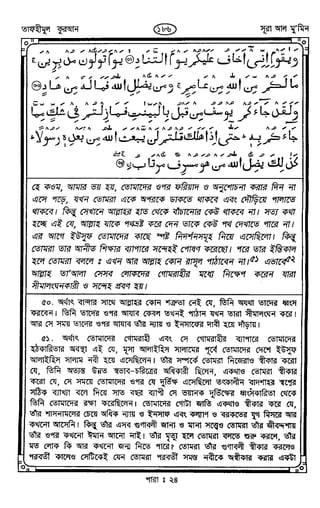 তাফহীমুল কুরআন ১৮৬ সূরা আল মু’মিন
وَيٰقَوْمِ اِنِّىْٓ اَخَافُ عَلَيْكُمْ يَوْمَ التَّنَادِ ۝ يَوْمَ تُوَلُّوْنَ مُدْبِرِيْنَ ۚ
مَالَكُمْ مِّنَ اللهِ مِنْ عَاصِمٍ ۚ وَمَنْ يُّضْلِلِ اللهُ فَمَالَهٗ مِنْ هَادٍ ۝
وَلَقَدْ جَآءَكُمْ يُوْسُفُ مِنْ قَبْلُ بِالْبَيِّنٰتِ فَمَازِلْتُمْ فِىْ شَكٍّ مِّمَّا
جَآءَكُمْ بِهٖ ۚ حَتّٰىٓ اِذَا هَلَكَ قُلْتُمْ لَنْ يَّبْعَثَ اللهُ مِنْۢ بَعْدِهٖ رَسُوْلًا ۚ
كَذٰلِكَ يُضِلُّ اللهُ مَنْ هُوَ مُسْرِفٌ مُّرْتَابٌ ۝
হে কওম, আমার ভয় হয়, তোমাদের ওপর ফরিয়াদ ও অনুশোচনা করার দিন না
এসে পড়ে, যখন তোমরা একে অপরকে ডাকতে থাকবে এবং দৌড়িয়ে পালাতে
থাকবে। কিন্তু সেখানে আল্লাহর হাত থেকে বাঁচানোর কেউ থাকবে না। সত্য কথা
হচ্ছে এই যে, আল্লাহ যাকে পথভ্রষ্ট করে দেন তাকে কেউ পথ দেখাতে পারে না।
এর আগে ইউসুফ তোমাদের কাছে স্পষ্ট নিদর্শনসমূহ নিয়ে এসেছিলো। কিন্তু
তোমরা তার আনীত শিক্ষার ব্যাপারে সন্দেহই পোষণ করেছো। পরে তার ইন্তিকাল
হলে তোমরা বললে ঃ এখন আর আল্লাহ কোন রাসূল পাঠাবেন না।৫১ এভাবে৫২
আল্লাহ তা’আলা সেসব লোকদের গোমরাহীর মধ্যে নিক্ষেপ করেন যারা
সীমালংঘনকারী ও সন্দেহ প্রবণ হয়।
৫০. অর্থাৎ বান্দার সাথে আল্লাহর কোন শত্রুতা নেই যে, তিনি অযথা তাদের ধ্বংস
করবেন। তিনি তাদের ওপর আযাব কেবল তখনই পাঠান যখন তারা সীমালংঘন করে।
আর সে সময় তাদের ওপর আযাব তাঁর ন্যায় ও ইনসাফের দাবী হয়ে দাঁড়ায়।
৫১. অর্থাৎ তোমাদের গোমরাহী এবং সে গোমরাহীর ব্যাপারে তোমাদের
হঠকারিতার অবস্থা এই যে, মূসা আলাইহিস সালামের পূর্বে তোমাদের দেশে ইউসুফ
আলাইহিস সালাম নবী হয়ে এসেছিলেন। তাঁর সম্পর্কে তোমরা নিজেরাও স্বীকার করো
যে, তিনি অত্যন্ত উন্নত স্বভাব-চরিত্রের অধিকারী ছিলেন, একথাও তোমরা স্বীকার
করো যে, সে সময়ে তোমাদের ওপর যে দুর্ভিক্ষ এসেছিলো তৎকালীন বাদশাহর স্বপ্নের
সঠিক ব্যাখ্যা বলে দিয়ে সাত বছর ব্যাপী সে ভয়ানক দুর্ভিক্ষের ধ্বংসকারিতা থেকে
তিনি তোমাদের রক্ষা করেছিলেন। তোমাদের গোটা জাতি একথাও স্বীকার করে যে,
তাঁর শাসনামলের চেয়ে অধিক ন্যায় ও ইনসাফ এবং কল্যাণ ও বরকতের যুগ মিসরে আর
কখনো আসেনি। কিন্তু তাঁর এসব গুণাবলী জানা ও মানা সত্ত্বেও তোমরা তাঁর জীবদ্দশায়
তাঁর ওপর কখনো ঈমান আনো নাই। তাঁর মৃত্যু হলে তোমরা বলতে শুরু করলে, তাঁর
মত লোক কি আর কখনো জন্ম নিতে পারে? তোমরা তাঁর গুণাবলী স্বীকার করলেও
পরবর্তী কালেও সেটিকেই যেন তোমরা পরবর্তী সমস্ত নবীকে অস্বীকার করার একটা
পারা ঃ ২৪